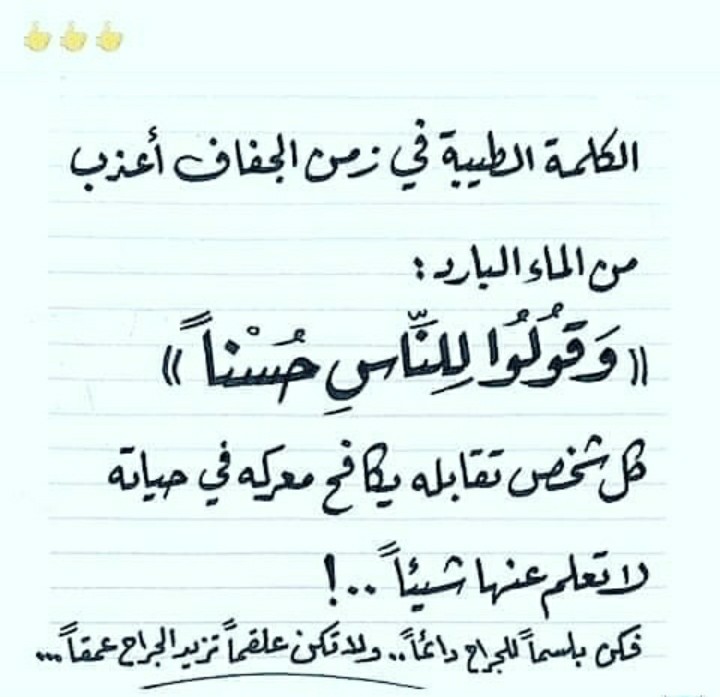 الكلمة الطيبة في زمن الجفاف أعذب
من الماء البارد :
«وَقُولُوا لِلنَّاسِ حُسْناً»
كل شخص تقابله يكافح معركه في حياته
لا تعلم عنها شيئاً ..!
فكن بلسماً للجراح دائماً .. ولا تكن علقماً تزيد الجراح عمقاً ...